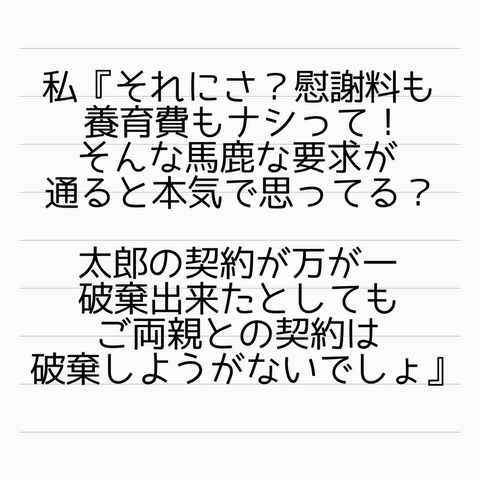 私『それにさ？慰謝料も
養育費もナシって！
そんな馬鹿な要求が
通ると本気で思ってる？
太郎の契約が万が一
破棄出来たとしても
ご両親との契約は
破棄しようがないでしょ』